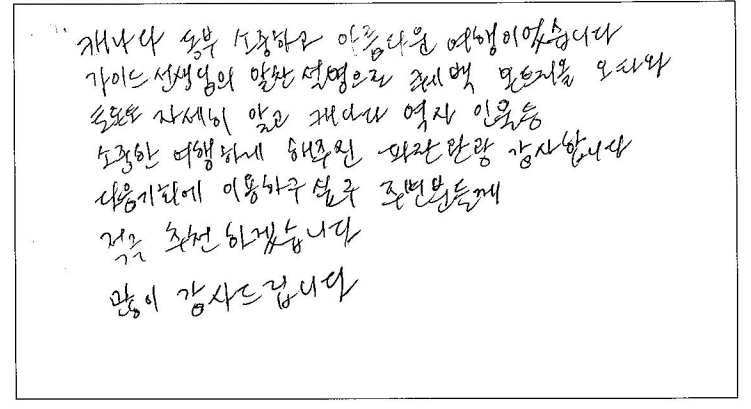 캐나다 동부 소중하고 아름다운 여행이었습니다
가이드선생님의 알찬설명으로 퀘백 몬트리올 오타와
토론토 자세히 알고 캐나다 역사 인물등
소중한 여행하게 해주신 파란관광 감사합니다
다음기회에 이용하구 싶구 주변분들께
적극 추천하겠습니다
많이 감사드립니다